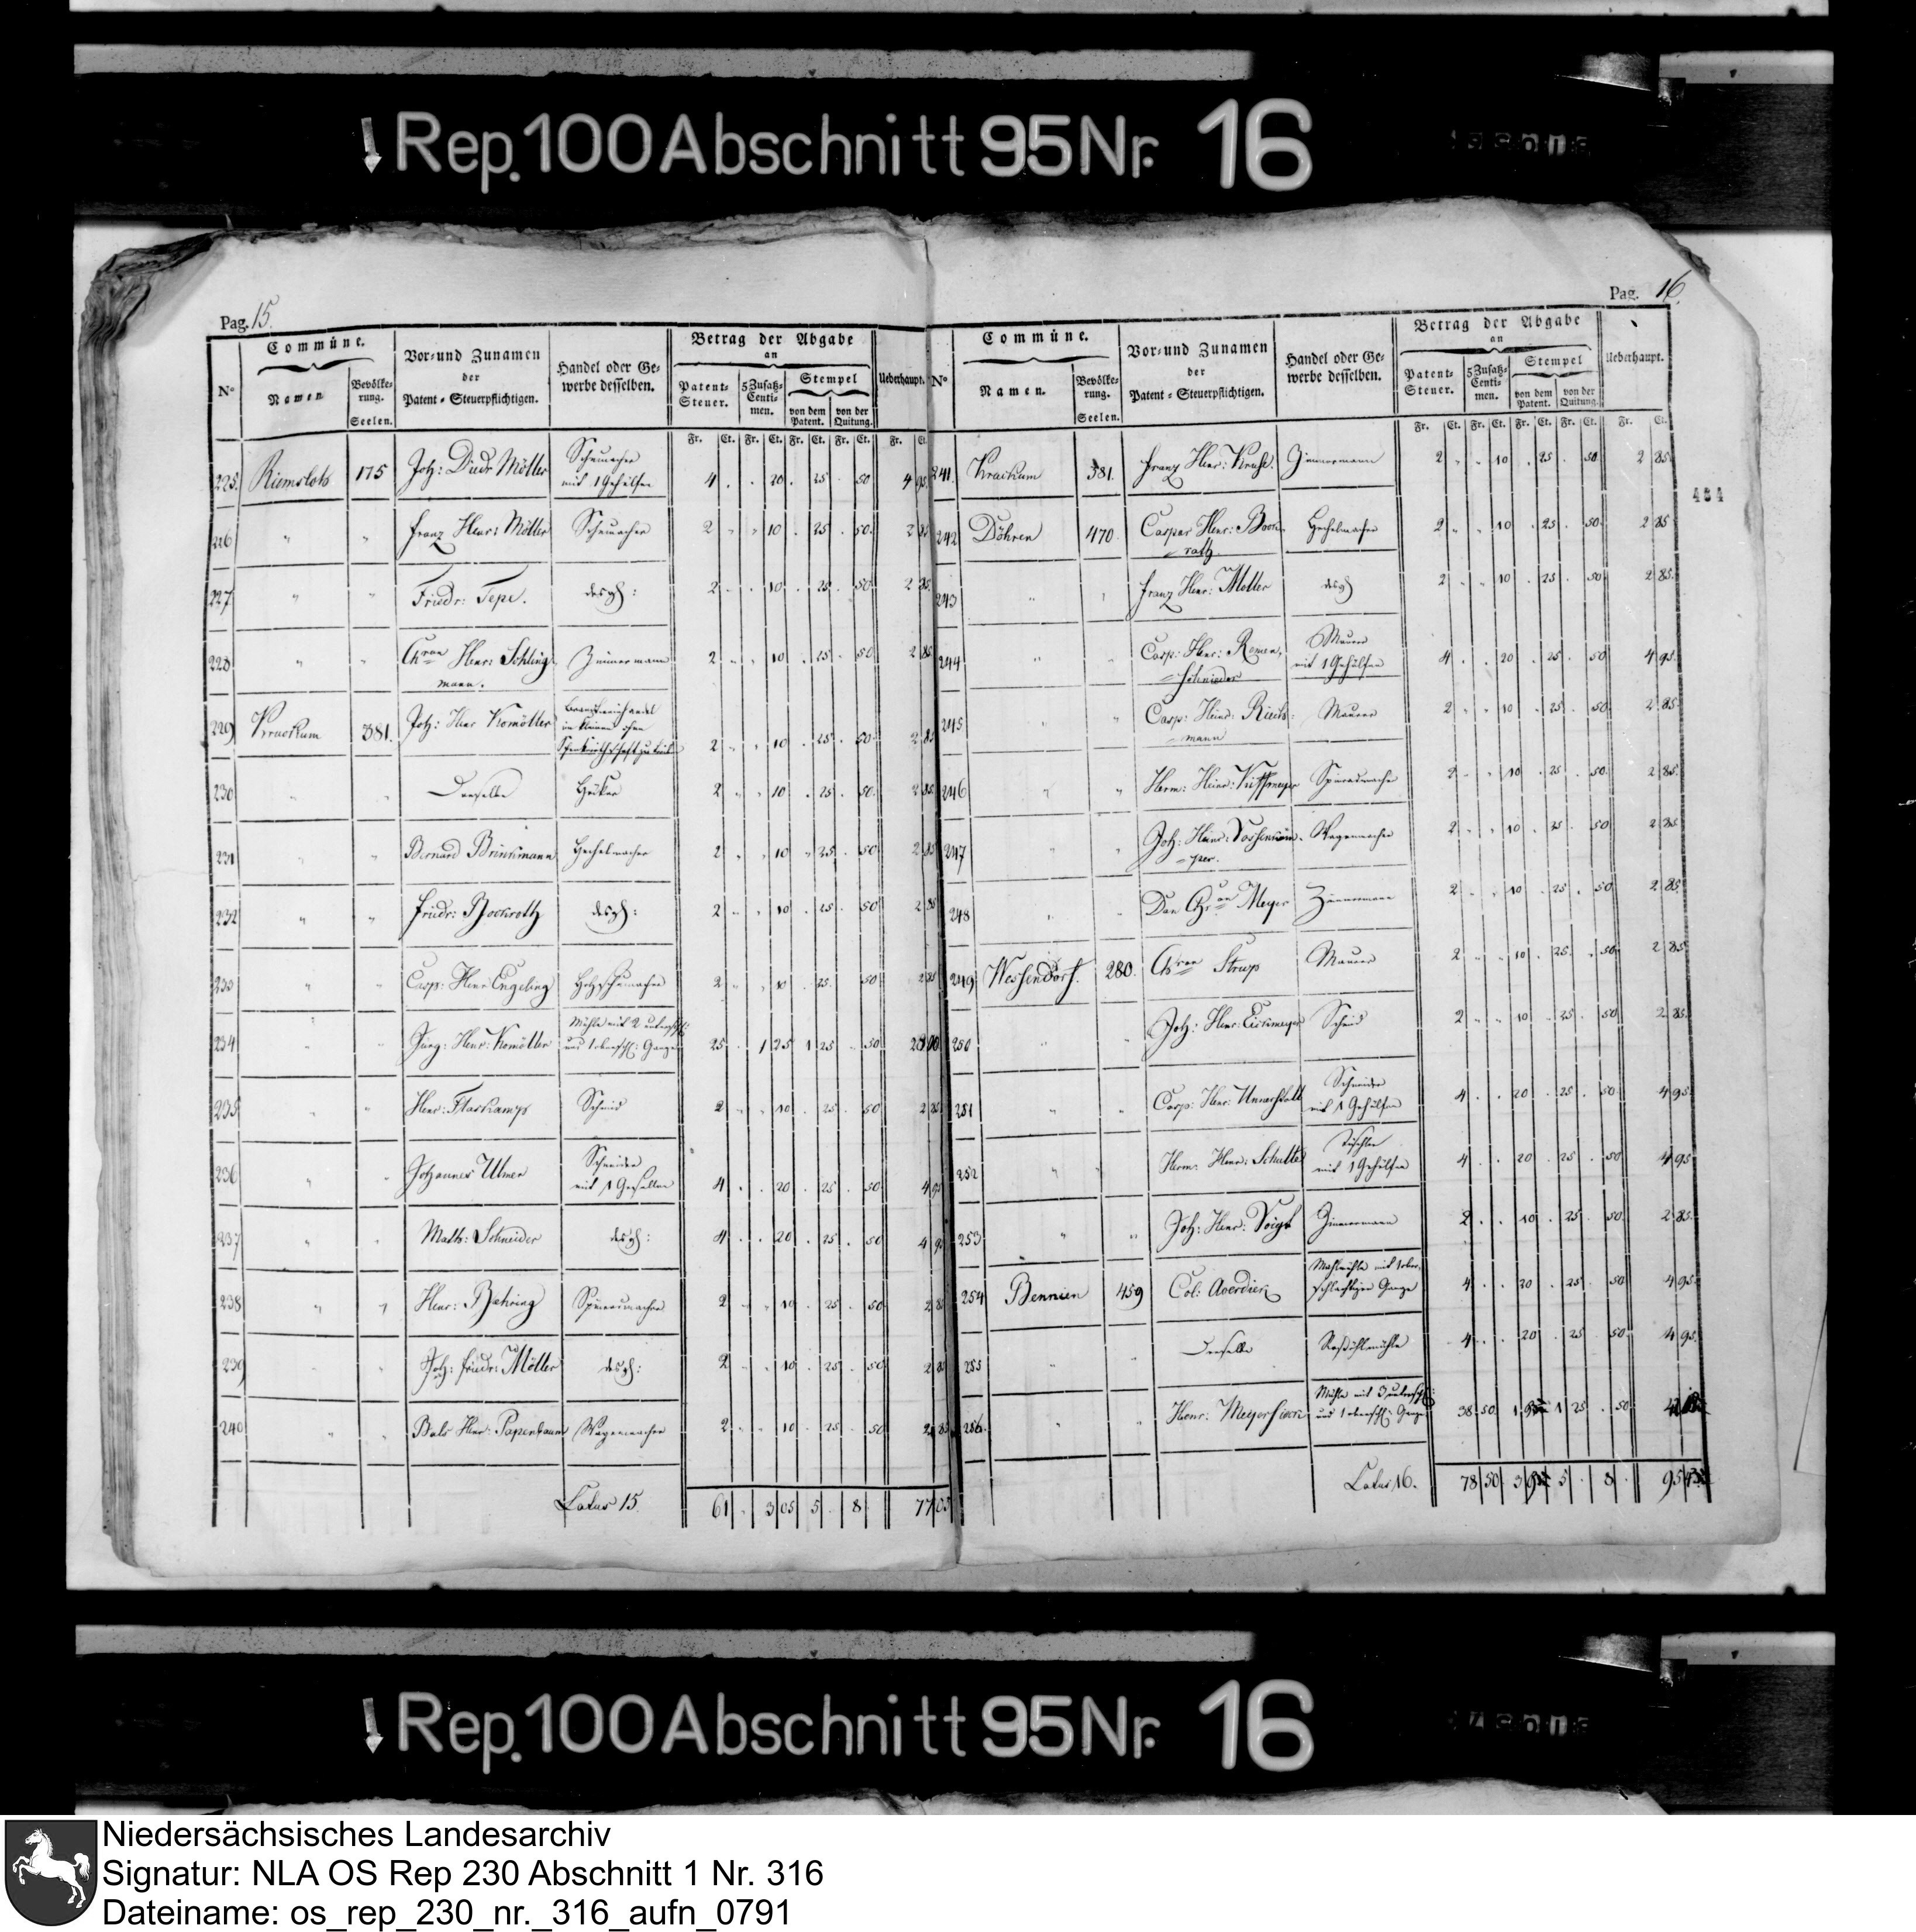 Rep. 100 Abschnitt 95 Nr. 16
Pag. 15.
N° Commüne. Vor- und Zunamen der Patent-Steuerpflichtigen. Handel oder Gewerbe desselben. Betrag der Abgabe an Ueberhaupt.
Namen Bevölkerung. Seelen. Patent-Steuer. 5 Zusatz-Centimen. Stempel von dem Patent. von der Quitung.
Fr. Ct. Fr. Ct. Fr. Ct. Fr. Ct. Fr. Ct.
225. Riemsloh 175 Joh: Diedr Möller Schumacher mit 1 Gehülfen 4 . . 20 . 25 . 50 4 95.
226 " " Franz Henr: Möller Schumacher 2 " " 10 . 25 . 50. 2 85
227 " " Friedr: Tepe. desgl: 2 " . 10 . 25 . 50. 2 85.
228 " " Chron Henr: Schlingmann. Zimmermann 2 " " 10 . 25 . 50 2 85
229 Krackum 381. Joh: Henr Komöller 2 " " 10 . 25 . 50. 2 85
230 " " Derselbe Höker 2 " " 10 . 25 . 50. 2 85
231 " " Bernard Brinkmann Hechelmacher 2 " . 10 " 25 . 50 2 85
232 " " Friedr: Bockroth desgl: 2 " . 10 . 25 . 50 2 85
233 " " Casp: Henr Engeling Holzschumacher 2 " " 10 . 25 . 50 2 85
234 " " Jürg: Henr: Komöller Mühle mit 2 unterschl: und 1 oberschl: Gange 25 . 1 25 1 25 . 50 28 00
235 " " Henr: Flaskamp Schmid 2 " " 10 . 25 . 50 2 85
236 " " Johannes Ulmer Schneider mit 1 Gesellen 4 . . 20 . 25 . 50. 4 95
237 " " Math: Schneider desgl: 4 . . 20 . 25 . 50 4 95
238 " " Henr: Behring 2 " " 10 . 25 . 50 2 85
239 " " Joh: Friedr: Möller desgl: 2 " . 10 . 25 . 50 2 85
240 " " Henr: Papenbaum Wagenmacher 2 " " 10 . 25 . 50 2 85
Latus 15. 61 . 3 05 5 . 8 . 77 05
Pag. 16.
N° Commüne. Vor- und Zunamen der Patent-Steuerpflichtigen. Handel oder Gewerbe desselben. Betrag der Abgabe an Ueberhaupt.
Namen. Bevölkerung. Seelen. Patent-Steuer. 5 Zusatz-Centimen. Stempel von dem Patent. von der Quitung.
Fr. Ct. Fr. Ct. Fr. Ct. Fr. Ct. Fr. Ct.
241. Krackum 381. Franz Henr: Kruse. Zimmermann 2 " " 10 . 25 . 50 2 85.
484
242 Döhren 470. Caspar Henr: Bockroth. Hechelmacher 2 " " 10 . 25 . 50. 2 85.
243 " " Franz Henr: Möller desgl 2 . " 10 . 25 . 50. 2 85.
244 " " Casp: Henr: Remenschnieder Maurer mit 1 Gehülfen 4 . . 20 . 25 . 50 4 95.
245 " " Casp: Maurer 2 " " 10 . 25 . 50. 2 85.
246 " " Herm: Heinr: 2 " " 10 . 25 . 50. 2 85.
247 " " Joh: Heinr: Wagenmacher 2 . " 10 . 25 . 50 2 85
248 " " Dan Chron Meyer Zimmermann 2 . " 10 . 25 . 50 2 85
249 Wessendorf. 280. Chron Strup Maurer 2 " " 10 . 25. . 50. 2 85
250 " " Joh: Henr: Schmid 2 " " 10 . 25 . 50 2 85.
251 " " Casp: Henr: Schneider mit 1 Gehülfen 4 . . 20 . 25 . 50. 4 95.
252 " " Herm: Henr: Schulte Tischler mit 1 Gehülfen 4 . . 20 . 25 . 50 4 95
253 " " Joh: Henr: Voigt Zimmermann 2 . . 10 . 25 . 50. 2 85.
254 Bennien 459 Col: Averdiek Mahlmühle mit 1 oberschlächtigen Gange 4 . . 20 . 25 . 50 4 95.
255 " " Derselbe 4 . . 20 . 25 . 50. 4 95.
256. " " Henr: Mühle mit 3 unterschl: und 1 oberschl: Gange 38 50. 1 1 25 . 50
Latus 16. 78 50 3 5 . 8 . 95
Rep. 100 Abschnitt 95 Nr. 16
Niedersächsisches Landesarchiv
Signatur: NLA OS Rep 230 Abschnitt 1 Nr. 316
Dateiname: os_rep_230_nr._316_aufn_0791